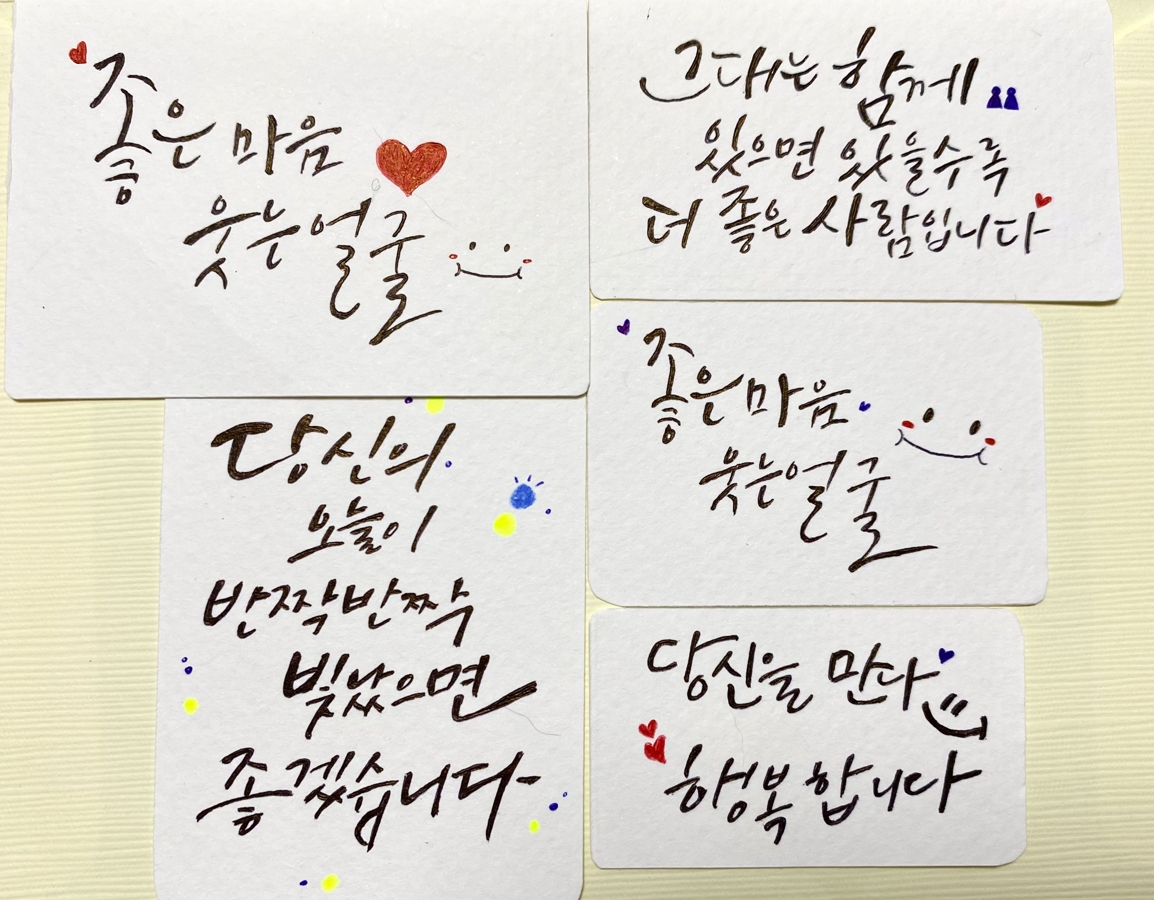 좋은 마음
웃는 얼굴
그대는 함께
있으면 있을수록
더 좋은 사람입니다
당신의
오늘이
반짝반짝
빛났으면
좋겠습니다
좋은 마음
웃는 얼굴
당신을 만나
행복합니다